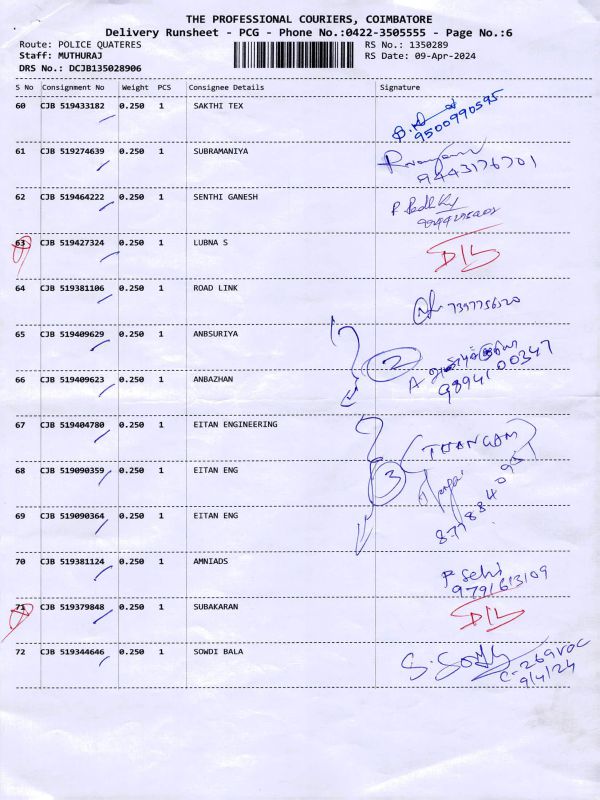 THE PROFESSIONAL COURIERS, COIMBATORE
Delivery Runsheet - PCG - Phone No.:0422-3505555 - Page No.:6
Route: POLICE QUATERES RS No.: 1350289
Staff: MUTHURAJ RS Date: 09-Apr-2024
DRS No.: DCJB135028906
S No Consignment No Weight PCS Consignee Details Signature
60 CJB 519433182 0.250 1 SAKTHI TEX
9500990595
61 CJB 519274639 0.250 1 SUBRAMANIYA
9443176701
62 CJB 519464222 0.250 1 SENTHI GANESH
63 CJB 519427324 0.250 1 LUBNA S
D/L
64 CJB 519381106 0.250 1 ROAD LINK
7397756520
65 CJB 519409629 0.250 1 ANBSURIYA
2
66 CJB 519409623 0.250 1 ANBAZHAN
9894100347
67 CJB 519404780 0.250 1 EITAN ENGINEERING
THANGAM
68 CJB 519090359 0.250 1 EITAN ENG
3
69 CJB 519090364 0.250 1 EITAN ENG
70 CJB 519381124 0.250 1 AMNIADS
P Selvi
9791613109
71 CJB 519379848 0.250 1 SUBAKARAN
D/L
72 CJB 519344646 0.250 1 SOWDI BALA
9/4/24